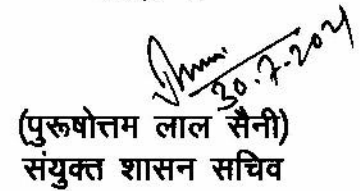 30.7.2021
(पुरूषोत्तम लाल सैनी)
संयुक्त शासन सचिव